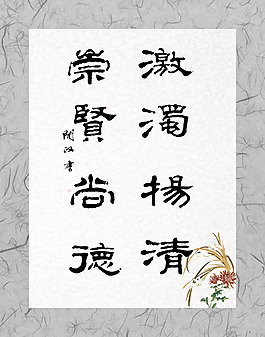 激濁揚清
崇賢尚德
閑汉書